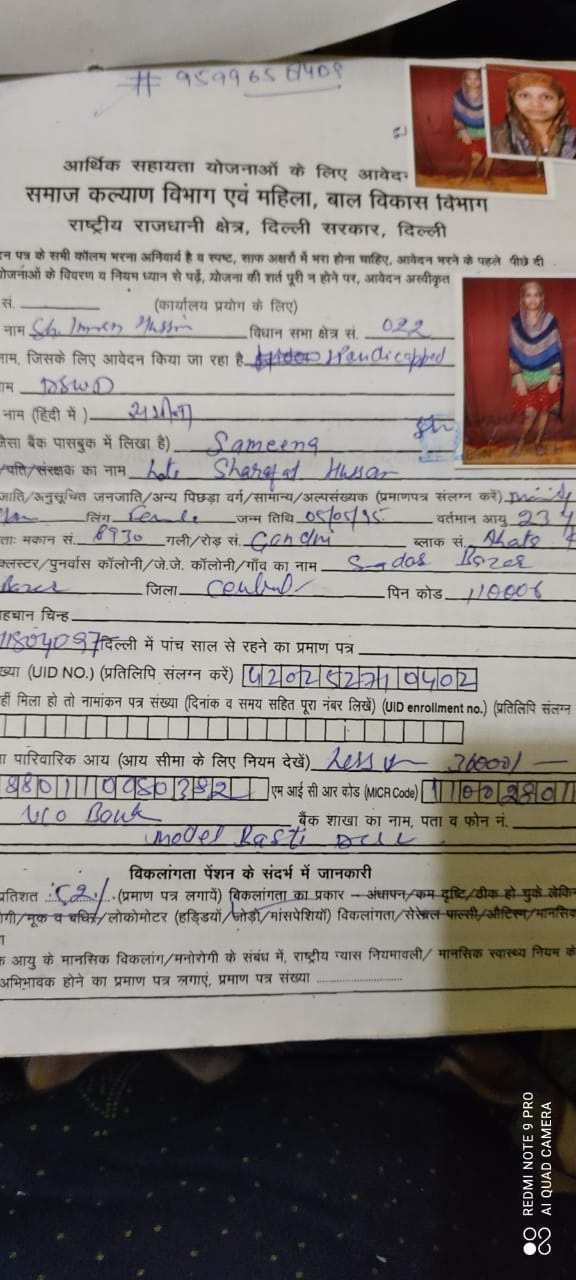 # 9599658409
आर्थिक सहायता योजनाओं के लिए आवेद
समाज कल्याण विभाग एवं महिला, बाल विकास विभाग
राष्ट्रीय राजधानी क्षेत्र, दिल्ली सरकार, दिल्ली
न पत्र के सभी कॉलम भरना अनिवार्य है व स्पष्ट, साफ अक्षरों में भरा होना चाहिए, आवेदन भरने के पहले पीछे दी
योजनाओं के विवरण व नियम ध्यान से पढ़ें, योजना की शर्त पूरी न होने पर, आवेदन अस्वीकृत
सं. (कार्यालय प्रयोग के लिए)
नाम Sh. Imran Hussain विधान सभा क्षेत्र सं. 022
नाम, जिसके लिए आवेदन किया जा रहा है Handicapped
DSWD
नाम (हिंदी में )
जैसा बैंक पासबुक में लिखा है) Sameena
/पति/संरक्षक का नाम Late Sharafat Hussan
जाति/अनुसूचित जनजाति/अन्य पिछड़ा वर्ग/सामान्य/अल्पसंख्यक (प्रमाणपत्र संलग्न करें)
लिंग Female जन्म तिथि 05/05/95 वर्तमान आयु 23 y
ताः मकान सं. 8930 गली/रोड़ सं. Gandhi ब्लाक सं. Ahata
क्लस्टर/पुनर्वास कॉलोनी/जे.जे. कॉलोनी/गाँव का नाम Sadar Bazar
Bazar जिला Central पिन कोड 110006
हचान चिन्ह
दिल्ली में पांच साल से रहने का प्रमाण पत्र
ख्या (UID NO.) (प्रतिलिपि संलग्न करें)
हीं मिला हो तो नामांकन पत्र संख्या (दिनांक व समय सहित पूरा नंबर लिखें) (UID enrollment no.) (प्रतिलिपि संलग्न
पारिवारिक आय (आय सीमा के लिए नियम देखें) Less
एम आई सी आर कोड (MICR Code)
UCO Bank बैंक शाखा का नाम, पता व फोन नं.
Model Basti
विकलांगता पेंशन के संदर्भ में जानकारी
प्रतिशत (प्रमाण पत्र लगायें) विकलांगता का प्रकार – अंधापन/कम दृष्टि/ठीक हो चुके लेकिन
गी/मूक व बधिर/लोकोमोटर (हड्डियों/जोड़ों/मांसपेशियों) विकलांगता/सेरेब्रल पाल्सी/औटिज्म/मानसिक
क आयु के मानसिक विकलांग/मनोरोगी के संबंध में, राष्ट्रीय न्यास नियमावली/ मानसिक स्वास्थ्य नियम के
अभिभावक होने का प्रमाण पत्र लगाएं, प्रमाण पत्र संख्या
REDMI NOTE 9 PRO
AI QUAD CAMERA